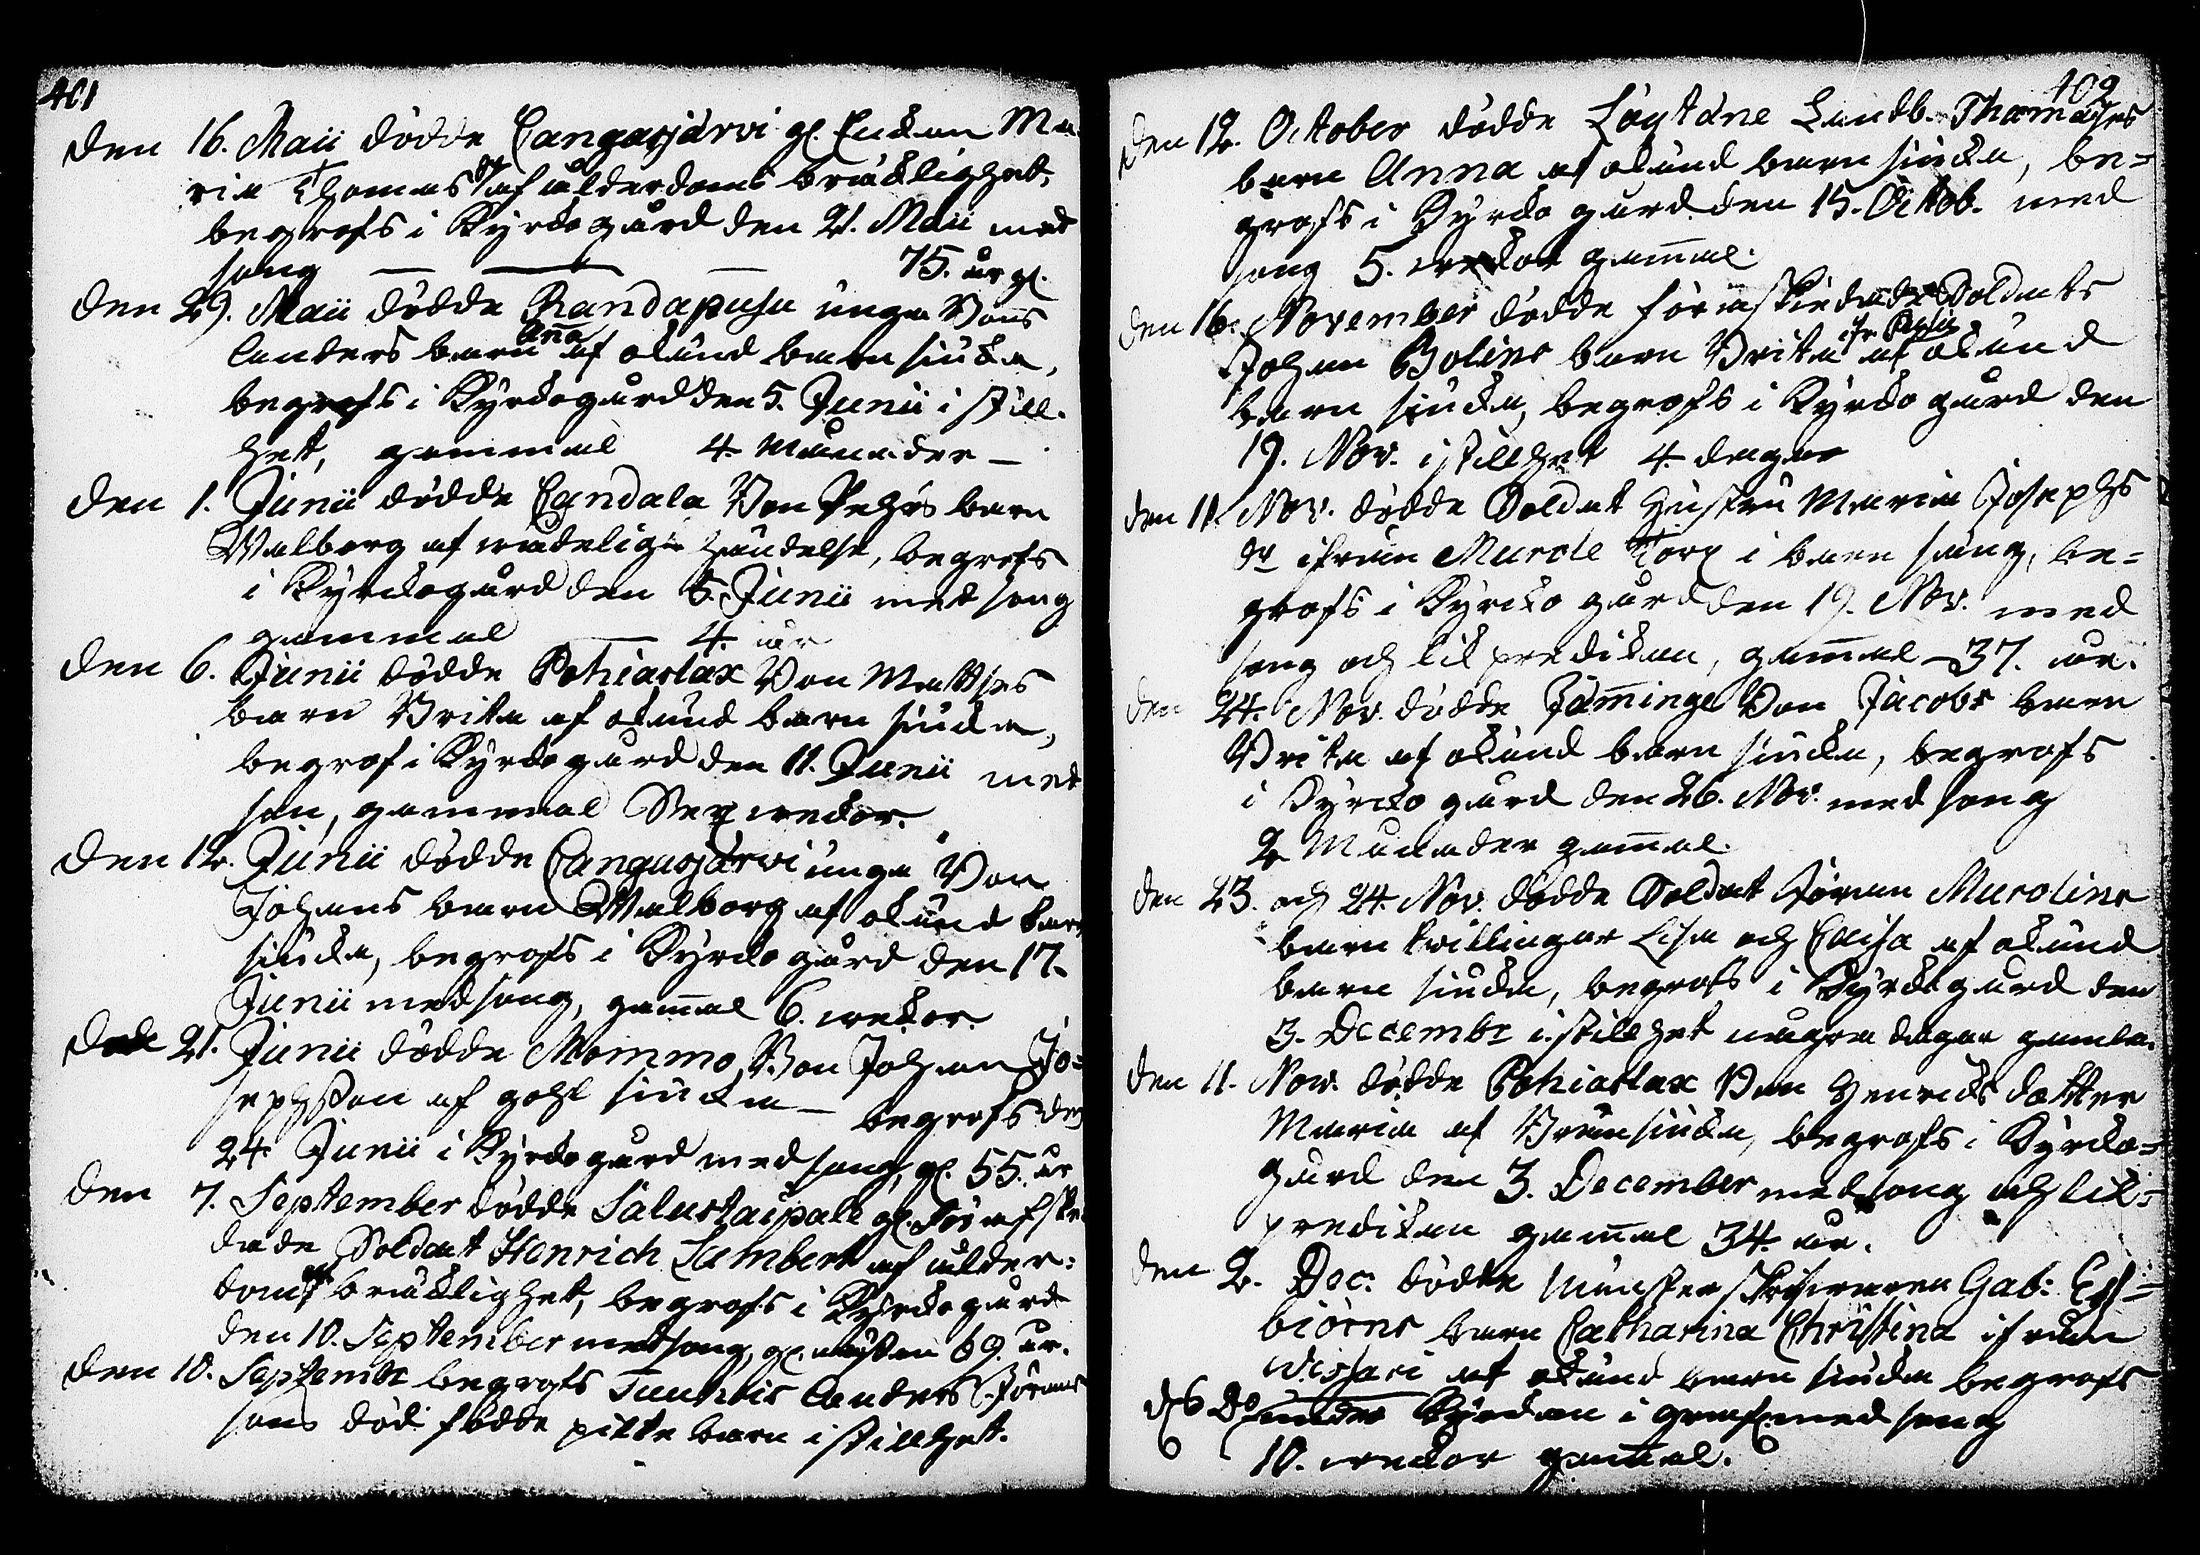 401
den 16. Maii dödde Cangasjärvi gl. Enckan Ma
ria Thomas dr af ålderdoms bräcklighet,
begrofs i Kyrckogård den 21. Maii med
song — — — 75. år gl.
den 29. Maii dödde Randapusu unga Bons
Anders barn Ana af okund barn siuka,
begrofs i Kyrckogård den 5. Junii i still-
het, gammal 4 Månader —
den 1. Junii dödde Candala Bon Pehrs barn
Walborg af wådelig händelse, begrofs
i Kyrckogård den 5. Junii med song
gammal — 4. år
den 6. Junii dödde Pohiaslax Bon Mattses
barn Brita af okund barn siuka,
begrof i Kyrckogård den 11. Junii med
son, gammal Sex weckor.
den 12. Junii dödde Cangasjärvi unga Bon
Johans barn Walborg af okund barn
siucka, begrofs i Kyrckogård den 17.
Junii med song, gam̄al 6. weckor.
den 21. Junii dödde Mommo Bon Johan Jo=
sephsson af siucka — begrofs den
24 Junii i Kyrckogård med song, gl. 55. år
den 7. September dödde Salustaipale gl. för afske
dade Soldat Henrich Lambert af ålder=
doms bräcklighet, begrofs i Kyrckogård
den 10. September med song, gl. nästan 69. år.
den 10. Septembr begrofs Tuunois Anders Jörans
sons död födde pilte barn i stillhet.
409
den 12. October dödde Löytäne Landb. Thomases
barn Anna af okund barn siucka, be=
grofs i Kyrcko gård den 15. Octob. med
song 5. weckor gam̄al.
den 16. November dödde för afskedade Soldats
Johan Bolins barn Brita ifr. af okund
barn siucka, begrofs i Kyrcko gård den
19. Nov. i stillhet 4 dagar
den 11. Nov. dödde Soldat Hustru Maria Josephs
dr ifrån Murole Torp i barn säng, be=
grofs i Kyrcko gård den 19. Nov. med
song och lik predikan, gam̄al — 37. år.
den 24. Nov. dödde Jäminge Bon Jacobs barn
Brita af okund barn siucka, begrofs
i Kyrcko gård den 26. Nov. med song
2 Månader gam̄al.
den 23. och 24. Nov. dödde Soldat Jöran Murolins
barn twillingar Lisa och Caisa af okund
barn siucka, begrofs i Kyrckogård den
3. Decembr i stillhet några dagar gamla.
den 11. Nov. dödde Pohiaslax Bon Henrics dotter
Maria af Brånsiucka, begrofs i Kyrcko=
gård den 3. December med song och lik=
predikan gam̄al 34. år.
den 2. Dec. dödde Mönsterskrifwaren Gab: Es=
biörns barn Catharina Christina ifrån
Wissari af okund barn siucka begrofs
d. 6 Do under Kyrckan i graf med song
10. weckor gam̄al.